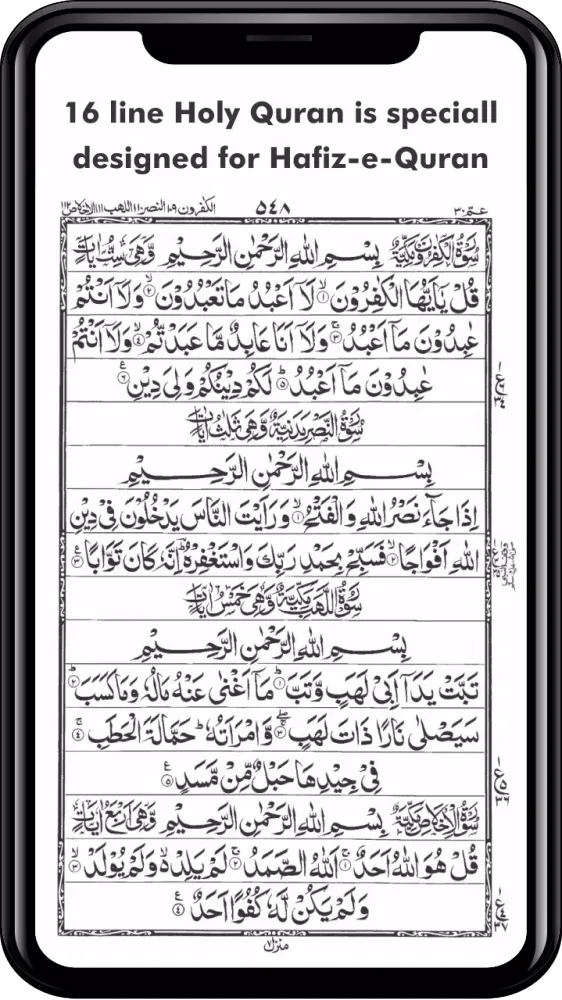 16 line Holy Quran is speciall
designed for Hafiz-e-Quran
عمّ ۳۰ ۵۴۸ الكفرون ۱۰۹ النصر ۱۱۰ اللهب ۱۱۱ الاخلاص ۱۱۲
سُوْرَةُ الْكٰفِرُوْنَ مَكِّيَّةٌ بِسْمِ اللهِ الرَّحْمٰنِ الرَّحِيْمِ وَّهِيَ سِتُّ اٰيَاتٍ
قُلْ يٰۤاَيُّهَا الْكٰفِرُوْنَ ۙ‏﴿۱﴾ لَاۤ اَعْبُدُ مَا تَعْبُدُوْنَ ۙ‏﴿۲﴾ وَلَاۤ اَنْتُمْ
عٰبِدُوْنَ مَاۤ اَعْبُدُ ۚ‏﴿۳﴾ وَلَاۤ اَنَا عَابِدٌ مَّا عَبَدْتُّمْ ۙ‏﴿۴﴾ وَلَاۤ اَنْتُمْ
عٰبِدُوْنَ مَاۤ اَعْبُدُ ؕ‏﴿۵﴾ لَكُمْ دِيْنُكُمْ وَلِيَ دِيْنِ ﴿۶﴾ ع
سُوْرَةُ النَّصْرِ مَدَنِيَّةٌ وَّهِيَ ثَلٰثُ اٰيَاتٍ
بِسْمِ اللهِ الرَّحْمٰنِ الرَّحِيْمِ
اِذَا جَآءَ نَصْرُ اللهِ وَالْفَتْحُ ۙ‏﴿۱﴾ وَرَاَيْتَ النَّاسَ يَدْخُلُوْنَ فِيْ دِيْنِ
اللهِ اَفْوَاجًا ۙ‏﴿۲﴾ فَسَبِّحْ بِحَمْدِ رَبِّكَ وَاسْتَغْفِرْهُ ؕ اِنَّهٗ كَانَ تَوَّابًا ﴿۳﴾ ع
سُوْرَةُ اللَّهَبِ مَكِّيَّةٌ وَّهِيَ خَمْسُ اٰيَاتٍ
بِسْمِ اللهِ الرَّحْمٰنِ الرَّحِيْمِ
تَبَّتْ يَدَاۤ اَبِيْ لَهَبٍ وَّتَبَّ ؕ‏﴿۱﴾ مَاۤ اَغْنٰى عَنْهُ مَالُهٗ وَمَا كَسَبَ ؕ‏﴿۲﴾
سَيَصْلٰى نَارًا ذَاتَ لَهَبٍ ۚۖ‏﴿۳﴾ وَّامْرَاَتُهٗ ؕ حَمَّالَةَ الْحَطَبِ ۚ‏﴿۴﴾
فِيْ جِيْدِهَا حَبْلٌ مِّنْ مَّسَدٍ ﴿۵﴾ ع
سُوْرَةُ الْاِخْلَاصِ مَكِّيَّةٌ بِسْمِ اللهِ الرَّحْمٰنِ الرَّحِيْمِ وَّهِيَ اَرْبَعُ اٰيَاتٍ
قُلْ هُوَ اللهُ اَحَدٌ ۚ‏﴿۱﴾ اَللهُ الصَّمَدُ ۚ‏﴿۲﴾ لَمْ يَلِدْ ۙ وَلَمْ يُوْلَدْ ۙ‏﴿۳﴾
وَلَمْ يَكُنْ لَّهٗ كُفُوًا اَحَدٌ ﴿۴﴾ ع
منزل